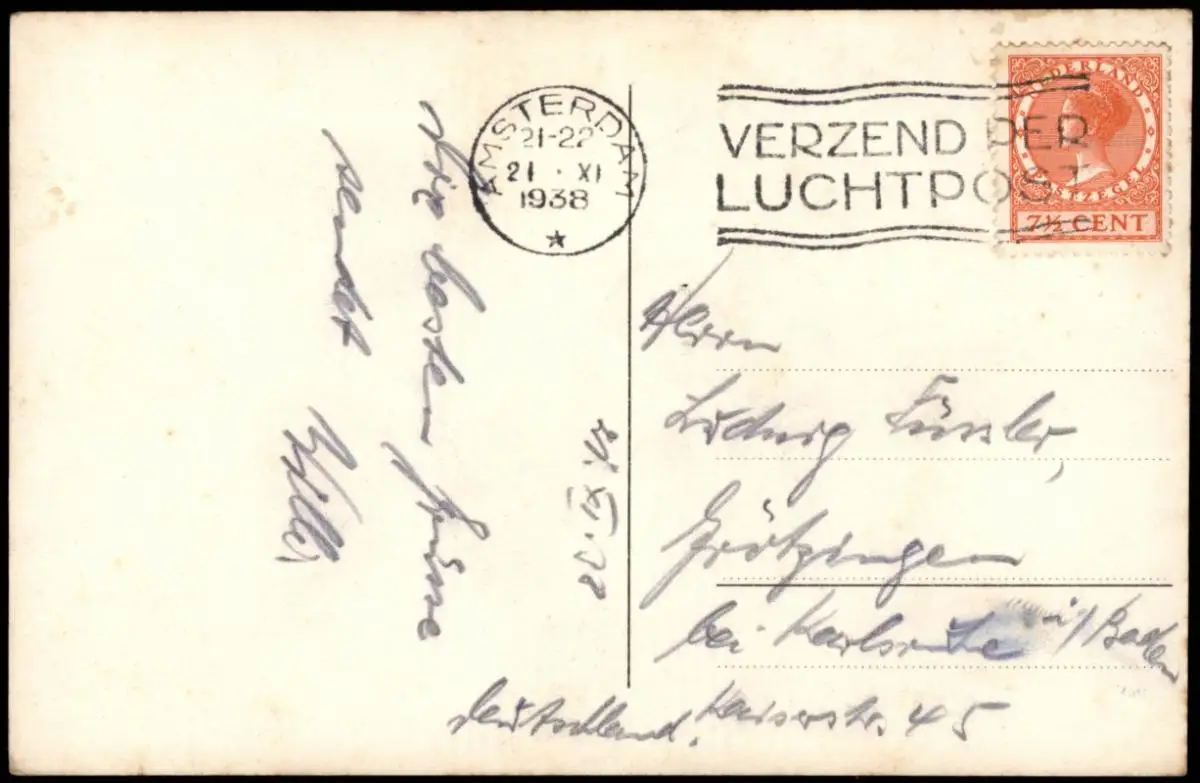 AMSTERDAM
21-22
21 · XI
1938
VERZEND PER
LUCHTPOST
NEDERLAND
POSTZEGEL
7½ CENT
Die besten Grüsse
sendet
Willi
21.XI.38
Herrn
Ludwig Füssler,
Grötzingen
bei Karlsruhe i/Baden
Kaiserstr. 45
Deutschland.